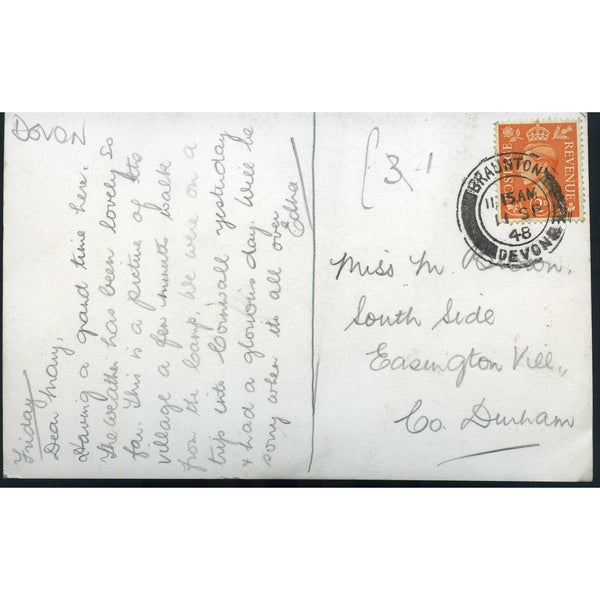 Devon
Friday
Dear Mary,
Having a grand time here.
The weather has been lovely so
far. This is a picture of the
village a few minute walk
from the Camp. We were on a
trip into Cornwall yesterday
& had a glorious day. Will be
sorry when its all over
Edna
3/-
POSTAGE
REVENUE
BRAUNTON
11.15AM
11 SP
48
DEVON
Miss M.
South Side
Easington Vill.,
Co. Durham